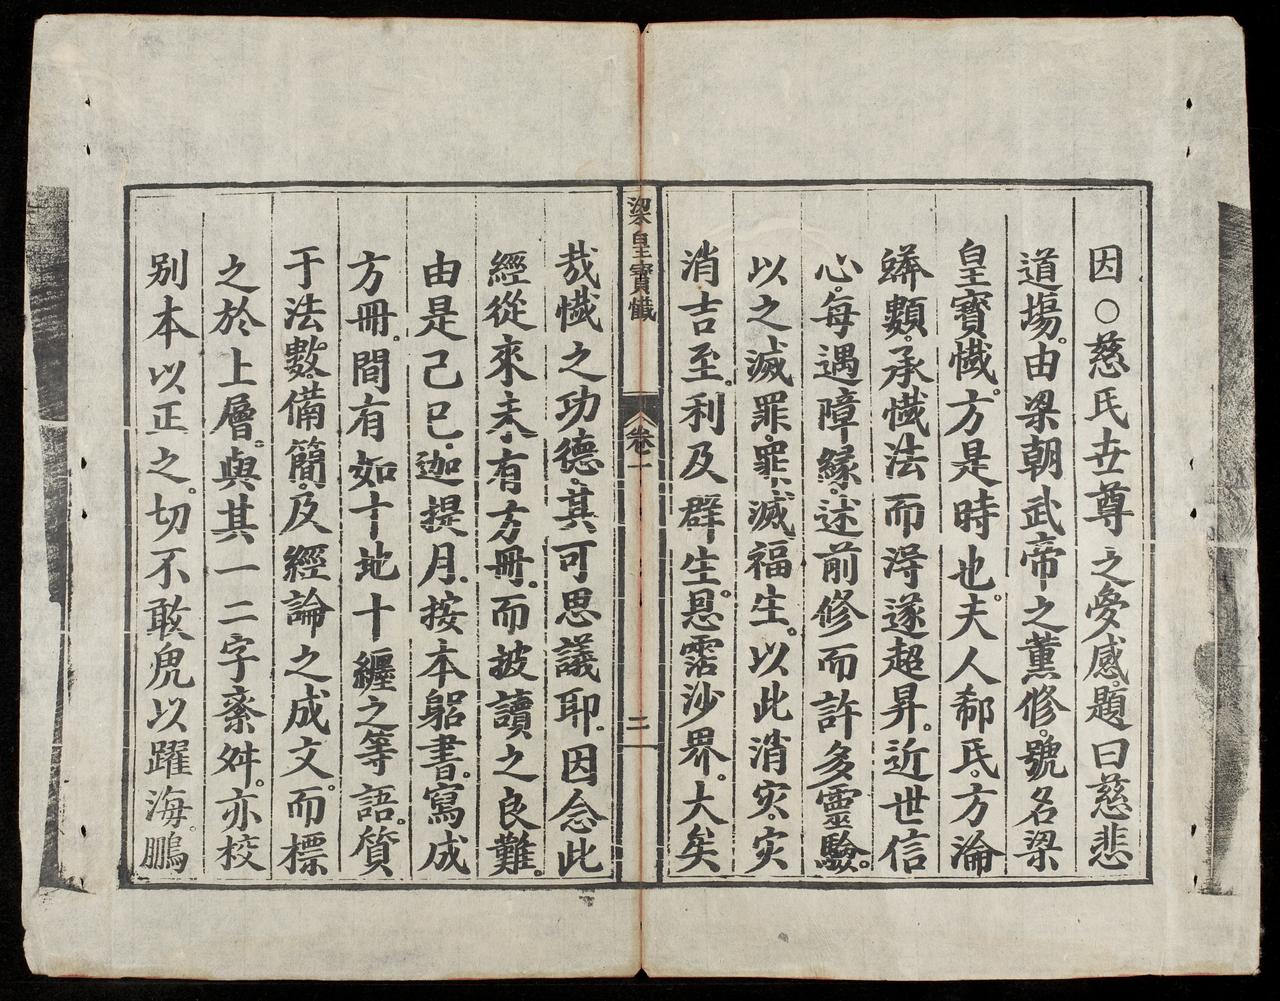 因○慈氏世尊之愛感。題曰慈悲
道場。由梁朝武帝之薰修。號名梁
皇寶懺。方是時也。夫人郗氏。方淪
蟒類。承懺法而淂遂超昇。近世信
心。每遇障緣。述前修而許多靈驗。
以之滅罪。罪滅福生。以此消灾。灾
消吉至。利及群生。恩霑沙界。大矣
梁皇寶懺
卷一
二
哉懺之功德。其可思議耶。因念此
經從來未有方冊。而披讀之良難。
由是己巳。迦提月。按本躬書。寫成
方冊。間有如十地十纏之等語。質
于法數。備簡。及經論之成文。而標
之於上層。與其一二字紊舛。亦校
別本以正之。切不敢鳧以躍海。鵬